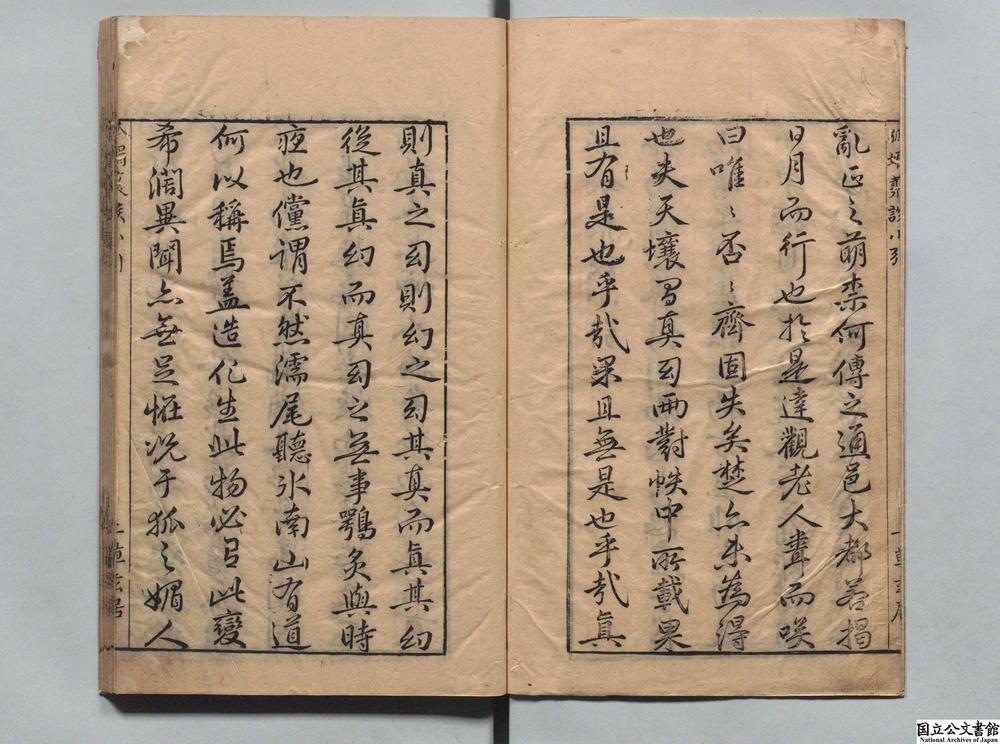 亂正之萌柰何傳之通邑大都若揭
日月而行也於是達觀老人聾而唉
曰唯〻否〻齊固失矣楚亦未為得
也夫天壤間真幻兩對帙中所載果
且有是也乎哉果且無是也乎哉真
則真之幻則幻之幻其真而真其幻
後其真幻而真幻之無事鶚炙與時
夜也儻謂不然濡尾聽氷南山有道
何以稱焉盖造化生此物必有此變
希濶異聞亦無足恠况于狐之媚人
国立公文書館
National Archives of Japan